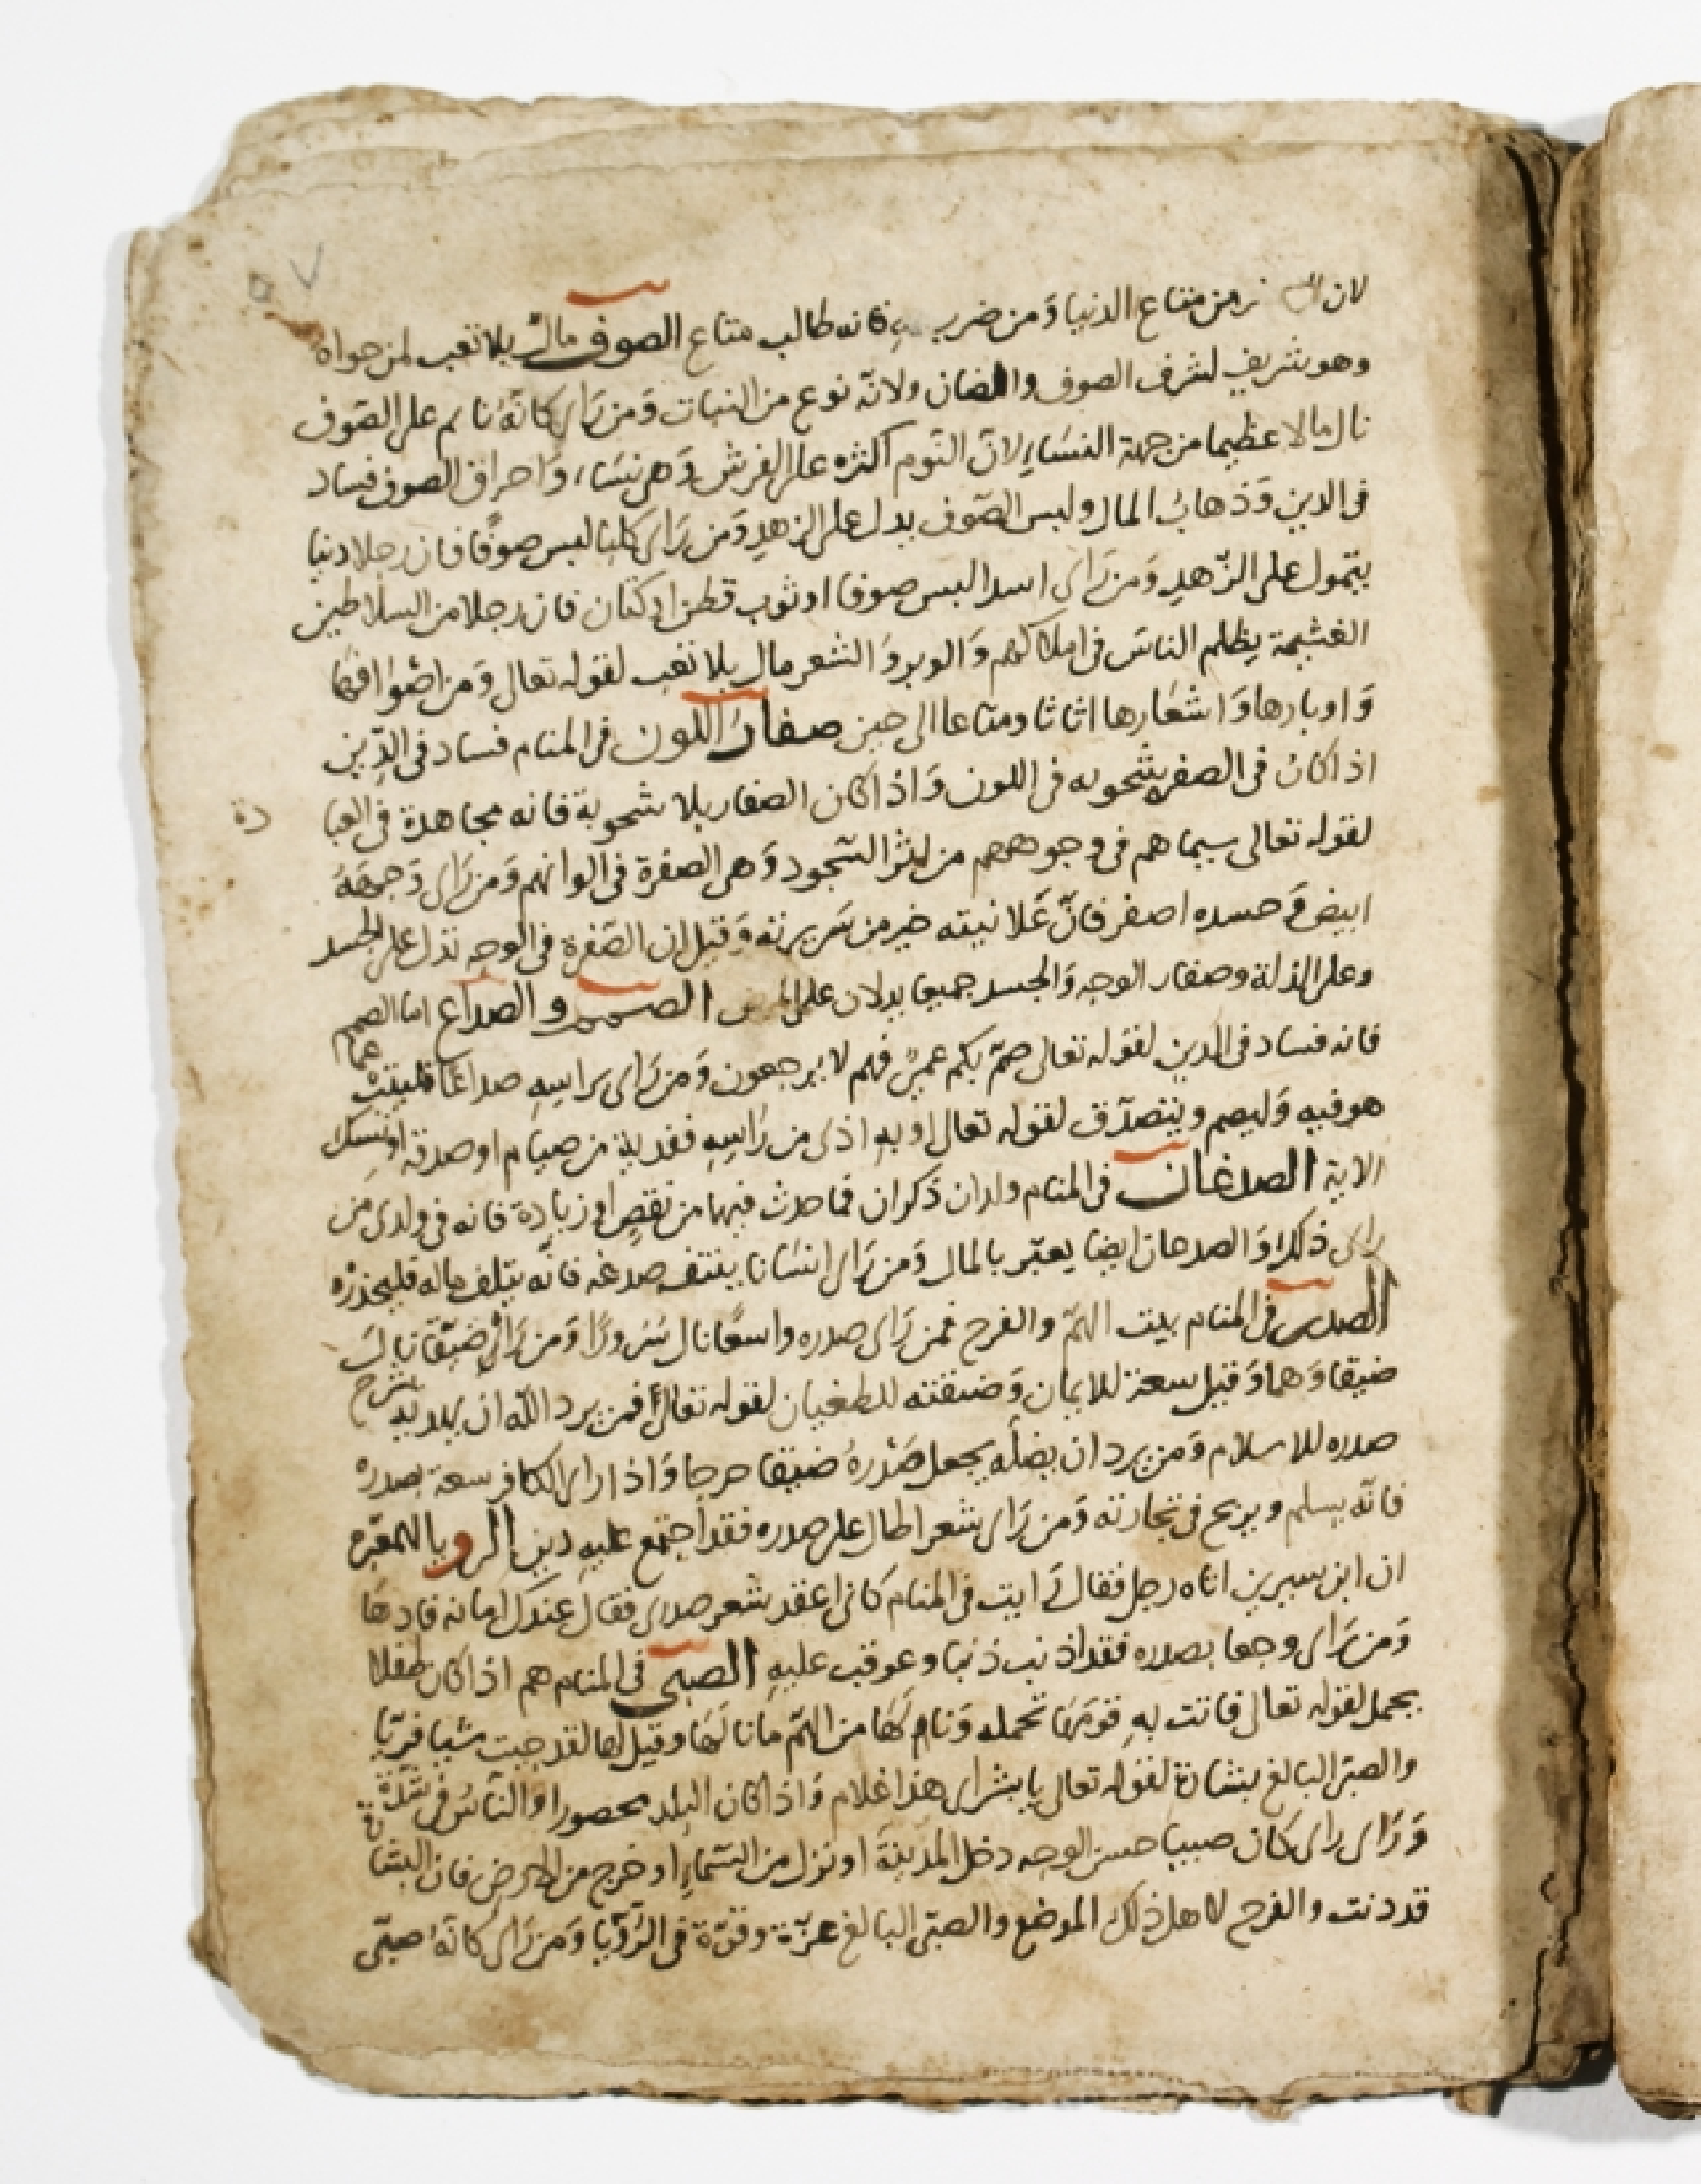 ٥٧
لان من متاع الدنيا وَمن ضرب به فانه طالب متاع الصوف مال بلا تعب لمن حواه
وهو شريف لشرف الصوف والضان ولانّه نوع من النبات وَمن رَاى كانّهُ نايم على الصّوف
نال مالا عظيما من جهة النسَاءِ لانّ النّوم اكثره على الفرش وَهى نسَاء وَاحراق الصوف فساد
فى الدين وَذهابُ المال ولبس الصّوف يدل على الزهدِ وَمن رَاى كلبا لبس صوفًا فان رجلا دنيا
يتمول على الزّهدِ وَمن رَاى اسدا لبس صوفا او ثوب قطن او كتان فان رجلا من السلاطين
الغشيمة يظلم الناسَ فى املاكهم وَالوبر وَالشعر مال بلا تعب لقوله تعالى وَمن اصْوَافهَا
وَاوبارها وَاشعَارها اثاثا ومتاعا الى حين صفارُ اللون فى المنام فساد فى الدِّين
اذا كانَ فى الصفره شحوبه فى اللون وَاذا كان الصفار بلا شحوبة فانه مجاهدة فى العبا
دة
لقوله تعالى سيماهم فى وجوههم من اثر السّجود وَهى الصفرة فى الوانهم وَمن رَاى وَجهَهُ
ابيض وَجسده اصفر فانّ عَلانيته خير من سَريرته وَقيل ان الصّفرة فى الوجه تدل على الجسد
وعلى الذلة وصفار الوجه وَالجسد جميعا يدلان على المرض الصمم والصداع اما الصمم
فانه فساد فى الدين لقوله تعالى صمٌّ بكم عمىٌ فهم لا يَرجعون وَمن رَاى براسِهِ صداعًا فليتبْ عما
هو فيه وَليصم ويتصدّق لقوله تعالى او به اذى من رَاسِهِ ففدية من صيام او صدقة او نسك
الاية الصدغان فى المنام ولدان ذَكران فما حدث فيهما من نقصٍ او زيادة فانه فى ولدى من
راى ذلك وَالصدغان ايضا يعبّر بالمال وَمن رَاى انسَانا ينتف صدغه فانّه يتلف ماله فليحذرْه
الصدر فى المنام بيت الهمّ والفرح فمن رَاى صدره واسعًا نال سُرورًا وَمن رَآه ضيّقا نال
ضيقا وَهما وَقيل سعته للايمان وَضيقته للطغيان لقوله تعالى فمن يرد الله ان يهديه يشرح
صدره للاسلام وَمن يرد ان يضلّه يجعل صَدْرهُ ضيقا حرجا وَاذا راى الكافر سعة بصدره
فانّه يسلم ويربح فى تجارته وَمن رَاى شعرا طال على صدره فقد اجتمع عليهِ دين الرويا المعبّره
ان ابن سيرين اتاه رجل فقال رَايت فى المنام كانى اعقد شعر صدرى فقال عندك امانه فادها
وَمن رَاى وجعا بصدره فقد اذنب ذنبا وعوقب عليهِ الصبى فى المنام هم اذا كان طفلا
يحمل لقوله تعالى فاتت بهِ قومَهَا تحمله وَنام لهَا من الهمّ ما نالهَا وقيل لها لقد جيت شيا فريّا
والصبىّ البالغ بشارة لقوله تعالى يا بشراى هذا غلام وَاذا كان البلد محصورا وَالناسُ فى شدّة
وَرَاى راى كان صبيا حسن الوجه دخل المدينة او نزل من السّماءِ او خرج من الارض فان البشا رة
قد دنت والفرح لاهل ذلك الموضع والصبّى البالغ عزّة وقوّة فى الرّؤيا وَمن رَاى كانّهُ صبىّ